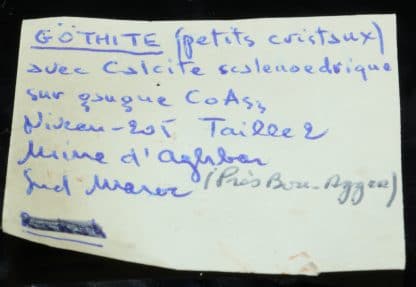 GÖTHITE (petits cristaux)
avec Calcite scalenoedrique
sur gangue CoAs₃
Niveau-205 Taille 2
Mine d'Aghbar
Sud Maroc (Près Bou-Azzer)